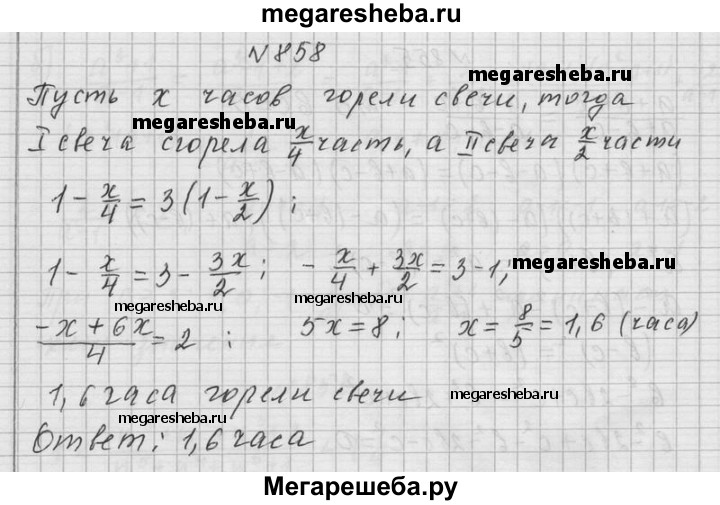 megaresheba.ru
N 858
megaresheba.ru
Пусть x часов горели свечи, тогда
megaresheba.ru
I свеча сгорела x/4 часть, а II свеча x/2 части
1 - x/4 = 3(1 - x/2);
1 - x/4 = 3 - 3x/2; - x/4 + 3x/2 = 3 - 1;
megaresheba.ru
megaresheba.ru
megaresheba.ru
(-x + 6x)/4 = 2; 5x = 8; x = 8/5 = 1,6 (часа)
1,6 часа горели свечи
megaresheba.ru
megaresheba.ru
Ответ: 1,6 часа
Мегарешеба.ру